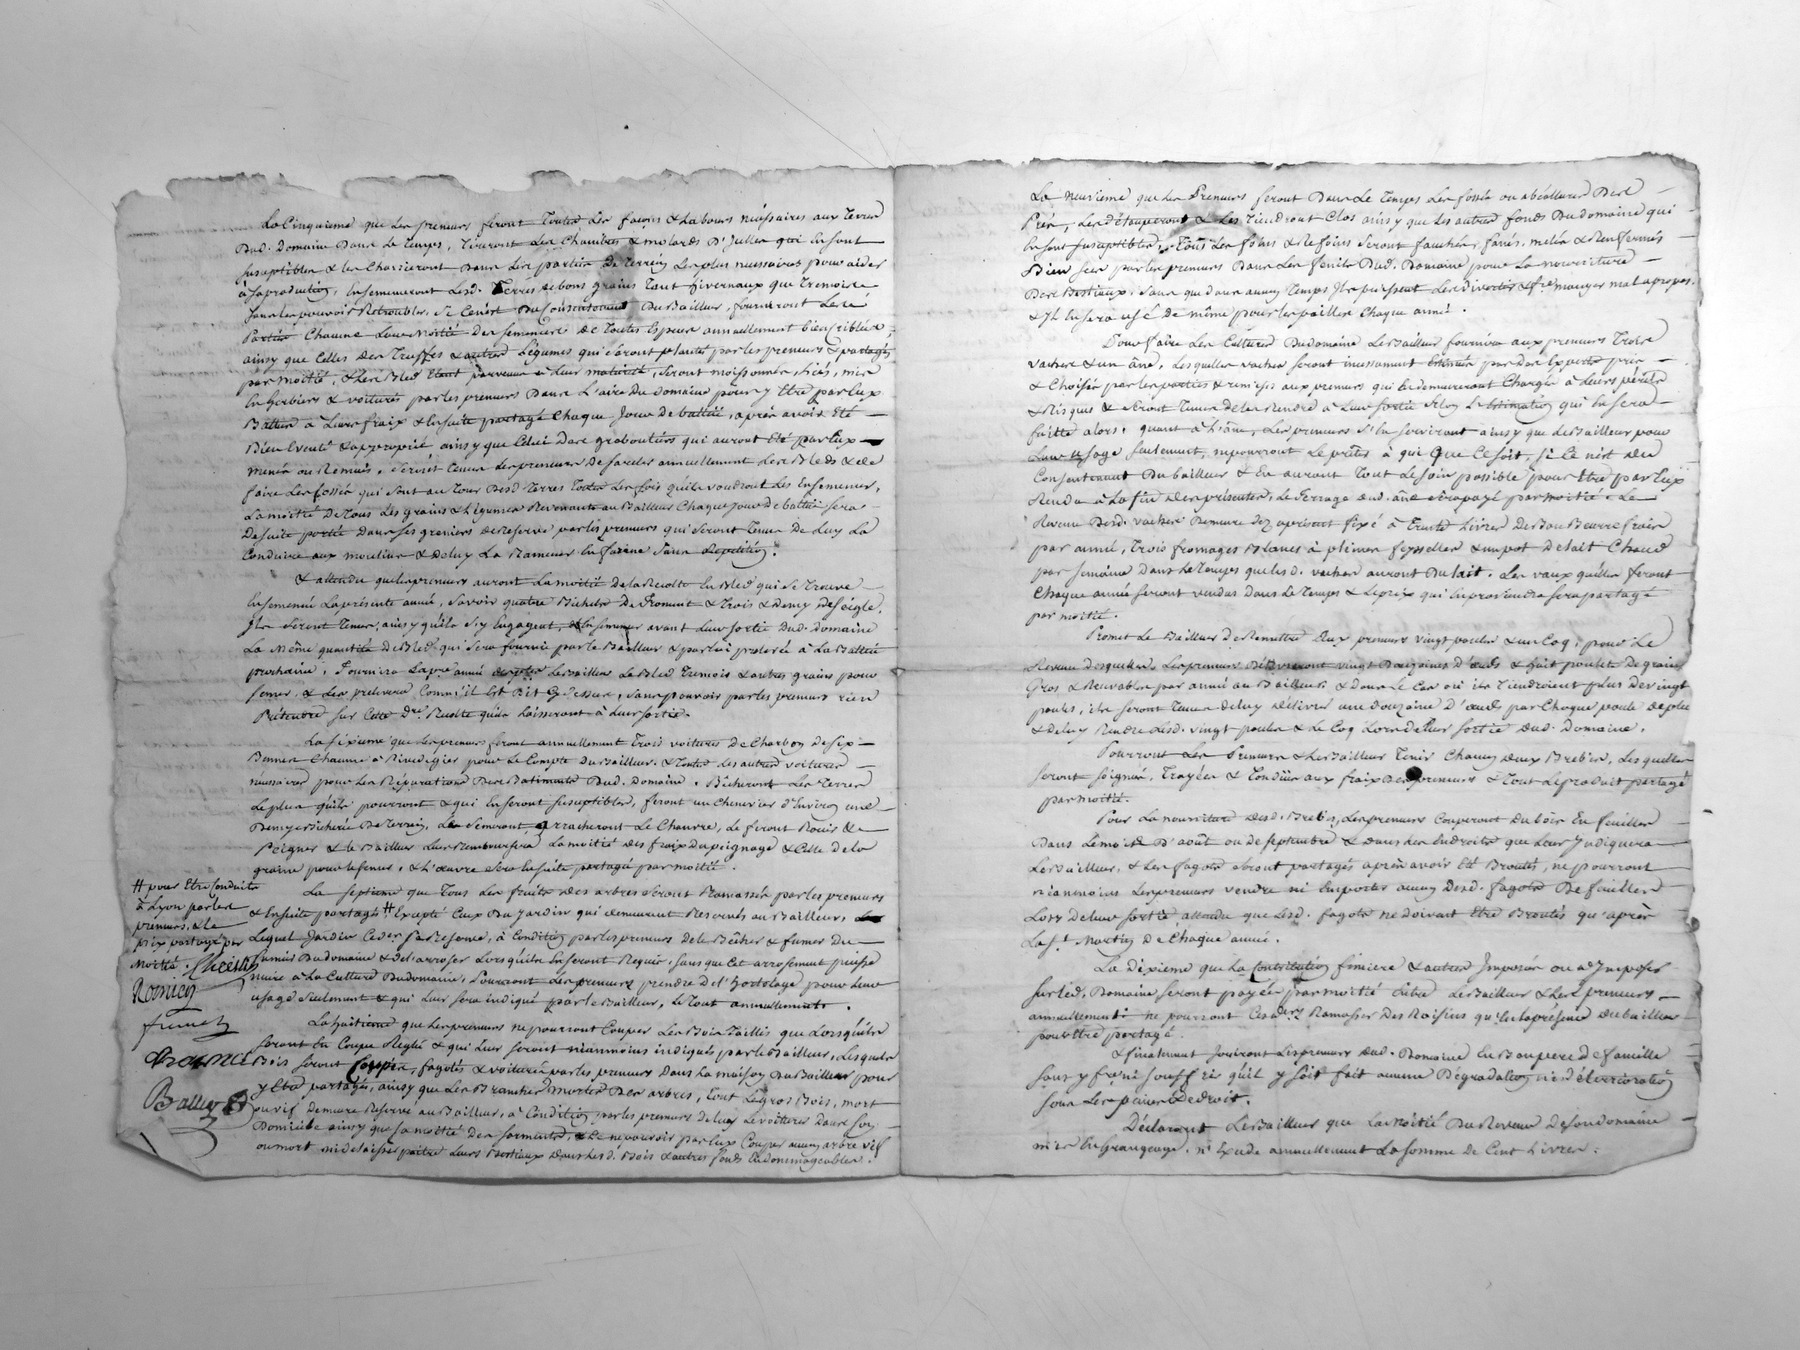 La Cinquieme que les preneurs feront toutes les façons & labours néssaires aux terres
dud. Domaine dans le temps, Tireront les Chambres & molards d'Icelles qui en sont
susceptibles & les Charrieront dans les parties de terrein les plus néssaires pour aider
à la production, Ensemenceront lesd. Terres de bons grains tant hivernaux que tremois
sans les pouvoir Retroubler, si Cenest du Consentement du Bailleur, fourniront lesd.
Parties Chacune la moitié des semences de toutes Especes annuellement bien criblées,
ainsy que Celles des Truffes & autres Légumes qui seront plantés par les preneurs & partagés
par moitié, & les Bled étant parvenus à leur maturité, seront moissonnés, liés, mis
En gerbiers & voiturés par les preneurs dans L'aire du domaine pour y Etre par Eux
Battus à leurs fraix & Ensuite partagé Chaque Jour de battue, après avoir Eté
Bien Eventé & approprié, ainsy que Celui des graboutiers qui auront Eté par Eux
menés ou Remués, seront tenus les preneurs de sarcler annuellement les Bleds & de
faire les fossés qui sont au tour desd Terres toutes les fois qu'ils voudront les Ensemencer,
La moitié de tous Les grains & Légumes Revenants au Bailleur Chaque jour de battue sera
de suite portée dans ses greniers de Reserve par les preneurs qui seront Tenus de Luy La
Conduire aux moulins & de luy La Ramener En farine sans Repetition.
& attendu que les preneurs auront La moitié de la Recolte En Bled qui se trouve
Ensemencée La présente année, savoir quatre Bichets de froment & trois & demy de seigle,
Ils seront Tenus, ainsy qu'ils s'y Engagent, d'Ensemencer avant Leur sortie dud. domaine
La Même quantité de Bled, qui sera fournie par le Bailleur & par lui prelevée à La Battue
prochaine, Fournira La pre. année le Bailleur Le Bled Tremois & autres grains pour
semer, & les prelevera Comm'il Est dit Cy dessus, sans pouvoir par les preneurs rien
Prétendre sur Cette dre. Recolte qu'ils Laisseront à Leur sortie.
La sixieme que les preneurs feront annuellement Trois voitures de Charbon de six
Bennes Chacune à Rivedegier pour le Compte du Bailleur. & Toutes Les autres voitures
néssaires pour les Réparations des Batiments dud. Domaine. Bêcheront Les Terres
Le plus qu'ils pourront & qui En seront susceptibles, feront un Chenevier d'Environ une
Demy Bicherée de Terrein, Le semeront, arracheront Le Chanvre, Le feront Rouir &
Peigner & le Bailleur Leur Remboursera La moitié des fraix du peignage & Celle de la
graine pour le semer, & L'oeuvre sera Ensuite partagé par moitié.
La septieme que Tous Les fruits des arbres seront Ramassés par les preneurs
& Ensuite partagés # Excepté Ceux du Jardin qui demeurent Reservés au Bailleur,
Lequel Jardin Ce der se Reserve, à Condition par les preneurs de le Bêcher & fumer du
fumier du domaine & de L'arroser Lorsqu'ils En seront Requis, sans que Cet arrosement puisse
nuire à La Culture du domaine, Pourront Les preneurs prendre de L'hortolage pour Leur
usage seulement & qui Leur sera indiqué par le Bailleur, Le Tout annuellement.
# pour Etre Conduits
à Lyon par les
preneurs, & le
prix partagé par
Moitié.
La huitieme que les preneurs ne pourront Couper Les Bois Taillis que Lors qu'ils
seront En Coupe Reglée & qui Leur seront néanmoins indiqués par le Bailleur, Lesquels
Bois seront Coupés, fagotés & voiturés par les preneurs dans La maison du Bailleur pour
y Etre partagés, ainsy que Les Branches mortes des arbres, Tout Le gros Bois, mort
ou vif demeure Reservé au Bailleur, à Condition par les preneurs de luy Le voiturer dans son
Domicile ainsy que sa moitié des sarments, & de ne pouvoir par Eux Couper aucun arbre vif
ou mort ni de laisser paître Leurs Bestiaux dans Lesd. Bois & autres fonds Endommageables.
La neuvieme que les Preneurs feront dans Le Temps Les fossés ou abéalieres des
Prés, Les détauperont & Les tiendront Clos ainsy que les autres fonds du domaine qui
En sont susceptibles. Tous Les foins & Refoins seront fauchés, fanés, mélés & Renfermés
Bien secs par les preneurs dans Les fenils dud. Domaine pour La nourriture
des Bestiaux, sans que dans aucun Temps Ils puissent Les divertir & fre. manger mal apropos,
& Il En sera usé de même pour les pailles Chaque année.
Pour faire Les Cultures du domaine Le Bailleur fournira aux preneurs Trois
vaches & un âne, Lesquelles vaches seront incessamment Estimées par des Experts pris
& Choisis par les parties & remises aux preneurs qui En demeureront Chargés à Leurs périls
& Risques & seront Tenus de les Rendre à Leur sortie selon L'Estimation qui En sera
faitte alors, quant à L'âne, Les preneurs s'En serviront ainsy que Le Bailleur pour
Leur usage seulement, ne pourront Le prêter à qui que Ce soit, si Ce n'est du
Consentement du bailleur & En auront Tout Le soin possible pour Etre par Eux
Rendu à La fin des présentes, Le ferrage dud. âne sera payé par moitié. Le
Revenu desd. vaches demeure dez aprésent fixé à Trente Livres de Bon Beurre frais
par année, Trois fromages Blancs à pleines feysselles & un pot de lait Chaud
par semaine dans Le Temps que lesd. vaches auront du lait. Les vaux qu'elles feront
Chaque année seront vendus dans Le Temps & Le prix qui En proviendra sera partagé
par moitié.
Promet Le Bailleur de Remettre aux preneurs vingt poules & un Coq, pour Le
Revenu desquelles Les preneurs délivreront vingt Douzaines d'oeufs & huit poulets de grain
Gros & Recevables par année au Bailleur; & dans Le Cas où ils Tiendroient plus de vingt
poules, ils seront Tenus de luy délivrer une douzaine d'oeufs par Chaque poule de plus
& de luy Rendre Lesd. vingt poules & Le Coq Lors de leur sortie dud. Domaine.
Pourront Les Preneurs & Le Bailleur Tenir Chacun deux Brebies, Lesquelles
seront soignées, Trayées & Tondües aux fraix des preneurs & Tout Le produit partagé
par moitié.
Pour La nourriture desd. Brebis, Les preneurs Couperont du bois En feuilles
dans Le mois d'août ou de septembre & dans Les Endroits que Leur Indiquera
Le Bailleur, & Les fagots seront partagés après avoir Eté Broutés, ne pourront
néanmoins Les preneurs vendre ni Emporter aucun desd. fagots de feuilles
Lors de leur sortie attendu que Lesd. fagots ne doivent Etre Broutés qu'après
La St. Martin de Chaque année.
La dixieme que La Contribution fonciere & autres Imposées ou à Imposer
sur led. Domaine seront payées par moitié Entre Le Bailleur & Les preneurs
annuellement. ne pourront Ces ders. Ramasser Les Raisins qu'En la présence du bailleur
pour Etre partagé.
& finalement Jouiront Les preneurs dud. Domaine En Bon pere de famille
sans y fre. ni souffrir qu'il y soit fait aucune Dégradation ni détérioration
sous Les peines de droit.
Déclarant Le Bailleur que La Moitié du Revenu de son domaine
mis En Grangeage, n'Excede annuellement La somme de Cent Livres.